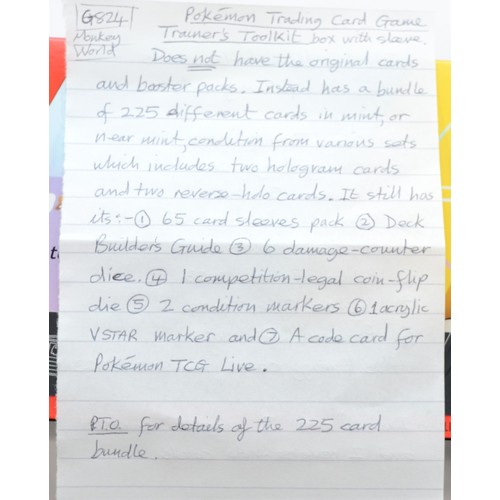 G824
Monkey
World
Pokémon Trading Card Game
Trainer's Toolkit box with sleeve.
Does not have the original cards
and booster packs. Instead has a bundle
of 225 different cards in mint, or
near mint, condition from various sets
which includes two hologram cards
and two reverse-holo cards. It still has
its:- ① 65 card sleeves pack ② Deck
Builder's Guide ③ 6 damage-counter
dice. ④ 1 competition-legal coin-flip
die ⑤ 2 condition markers ⑥ 1 acrylic
VSTAR marker and ⑦ A code card for
Pokémon TCG Live.
P.T.O. for details of the 225 card
bundle.